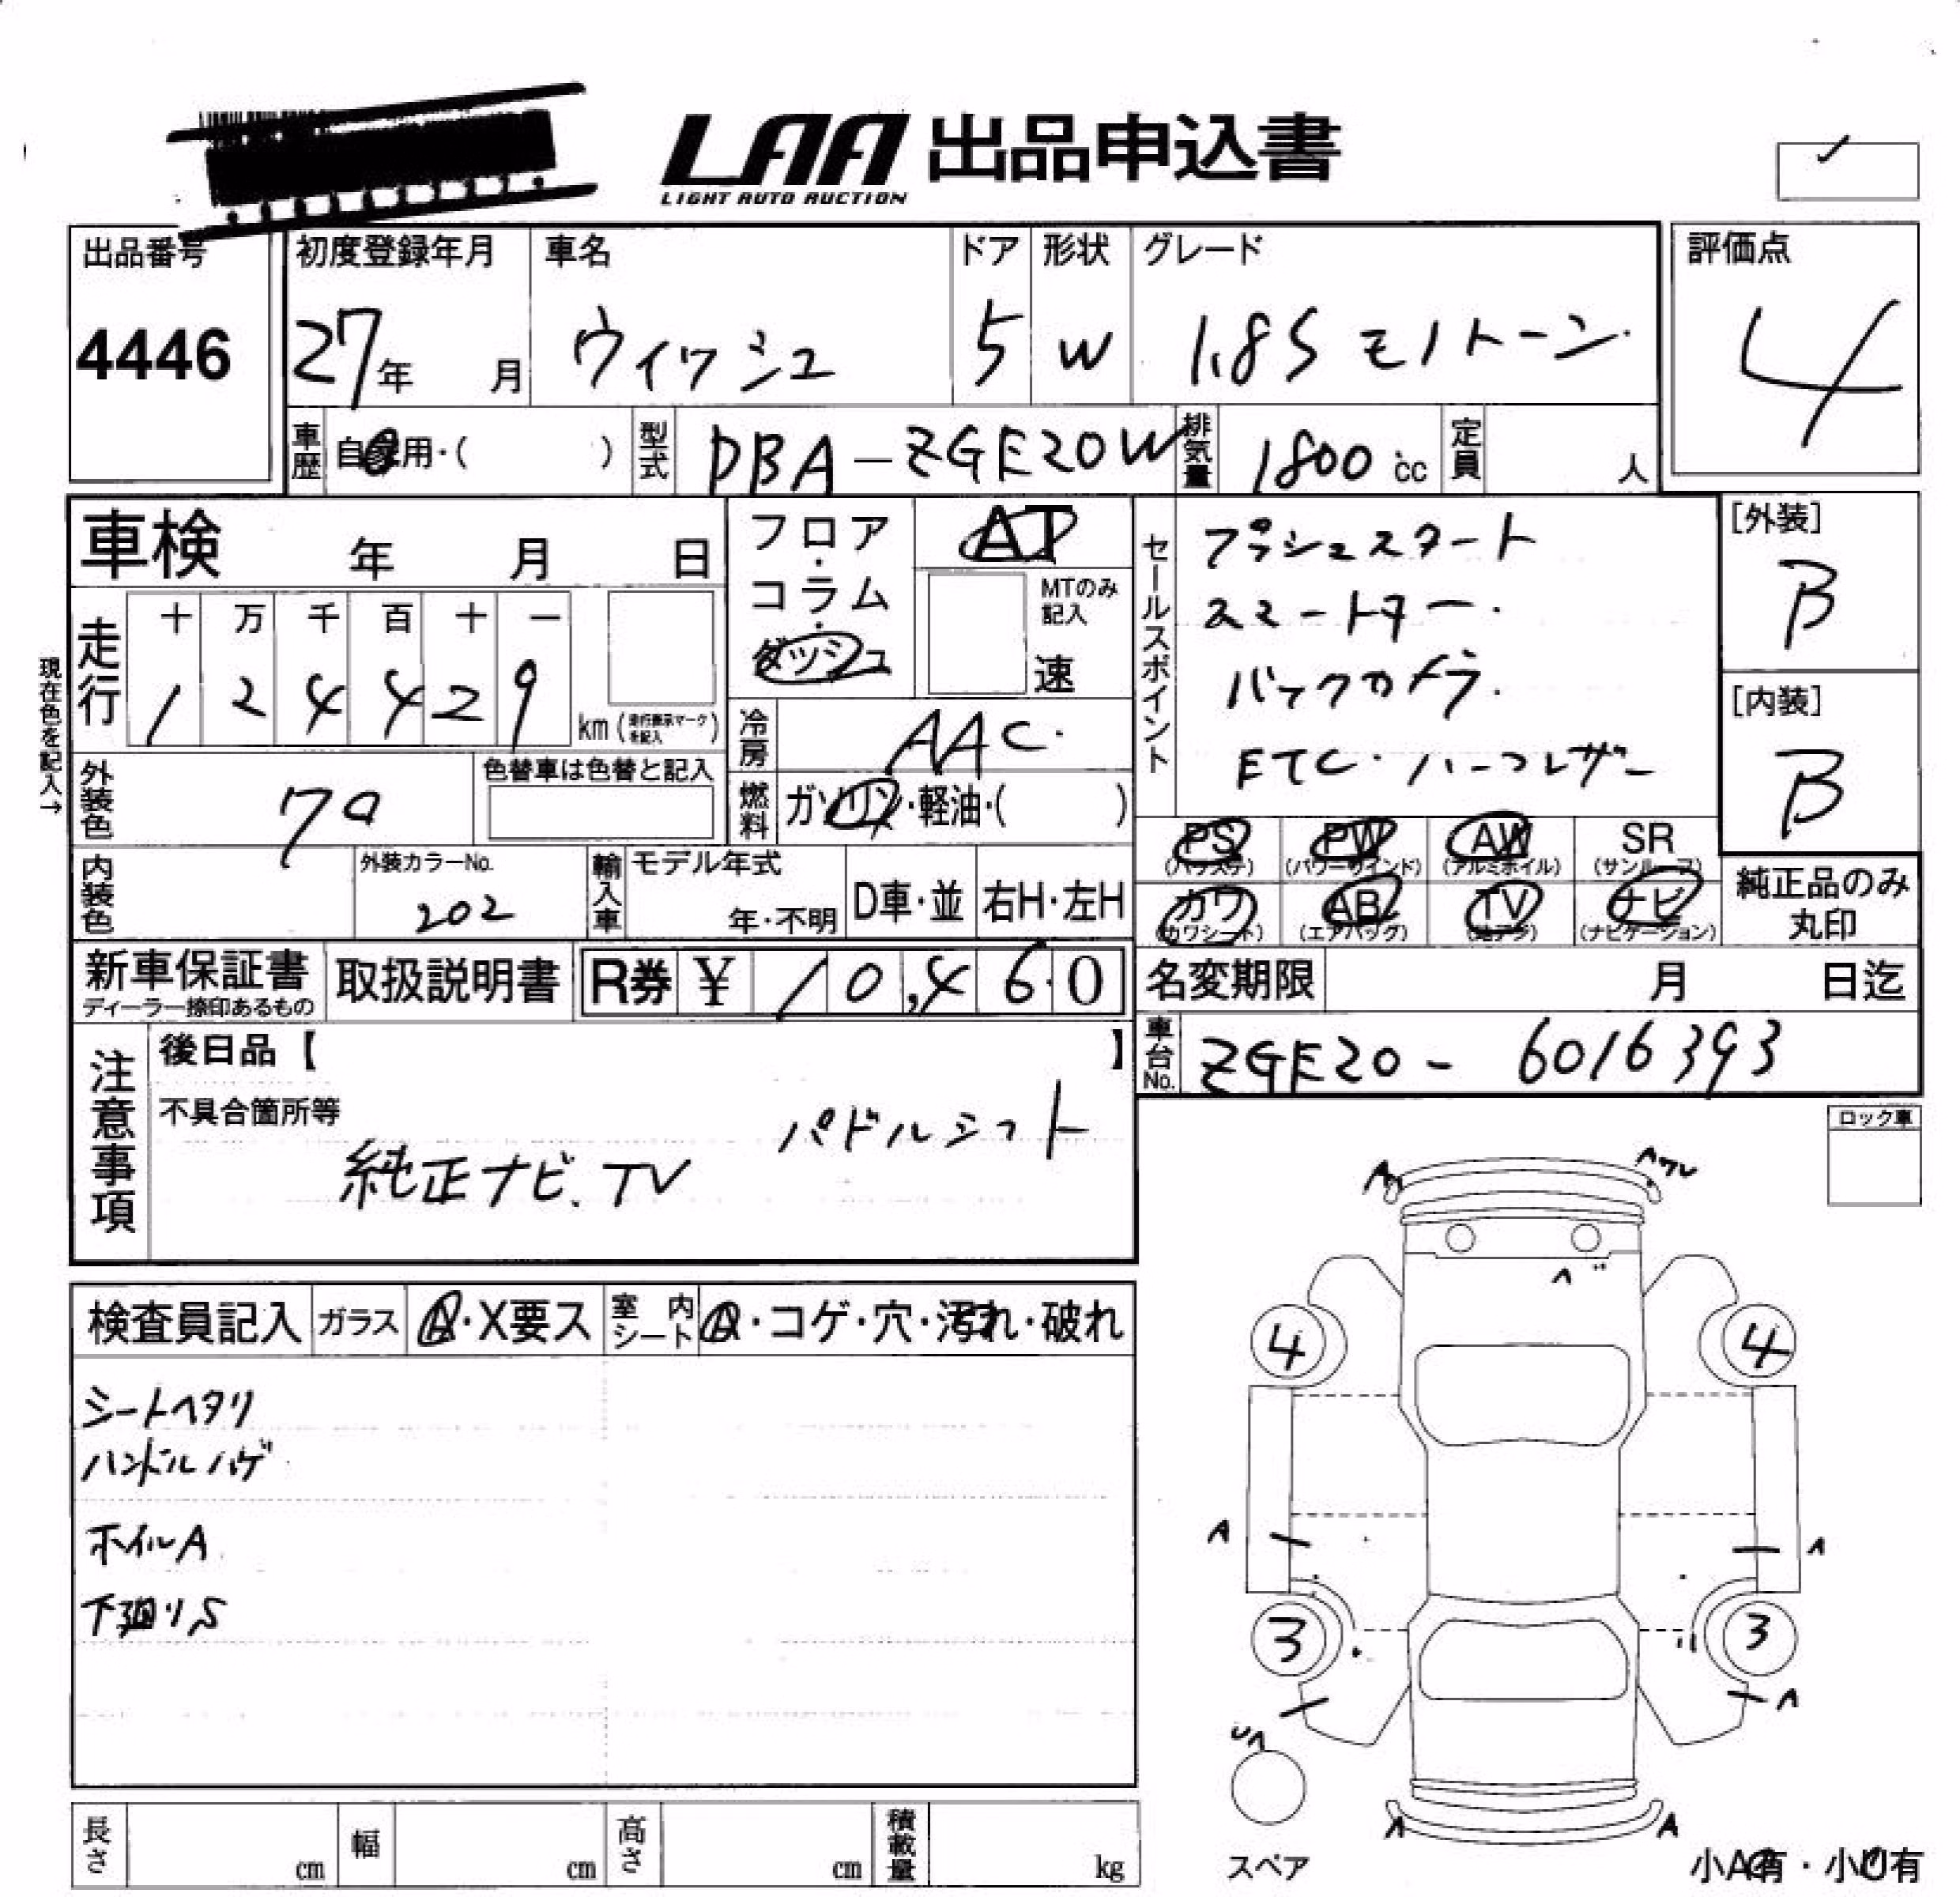 LAA 出品申込書
LIGHT AUTO AUCTION
出品番号 初度登録年月 車名 ドア 形状 グレード 評価点
4446 27年 月 ウィッシュ 5 W 1.8S モノトーン 4
車歴 自家用・( ) 型式 DBA-ZGE20W 排気量 1800 cc 定員 人
車検 年 月 日
フロア・コラム・ダッシュ
AT
MTのみ記入
速
セールスポイント
プッシュスタート
スマートキー.
バックカメラ.
ETC・ハーフレザー
[外装]
B
[内装]
B
現在色を記入→
走行 十 万 千 百 十 一
1 2 4 4 2 9 km (走行表示マークを記入)
冷房 AAC.
外装色 クロ
色替車は色替と記入
燃料 ガソリン・軽油・( )
PS (パワステ) PW (パワーウインド) AW (アルミホイル) SR (サンルーフ)
カワ (カワシート) AB (エアバッグ) TV (地デジ) ナビ (ナビゲーション)
純正品のみ丸印
内装色 外装カラーNo. 202
輸入車 モデル年式 年・不明 D車・並 右H・左H
新車保証書 ディーラー捺印あるもの 取扱説明書 R券 ¥ 10,460
名変期限 月 日迄
車台No. ZGE20-6016393
注意事項 後日品【 】
不具合箇所等
パドルシフト
純正ナビ.TV
ロック車
検査員記入 ガラス A・X要ス 室内シート A・コゲ・穴・汚れ・破れ
シートヘタリ
ハンドルハゲ
ホイルA
下廻りS
A
4 4
A A
3 3
A
A A
スペア
小A有・小U有
長さ cm 幅 cm 高さ cm 積載量 kg